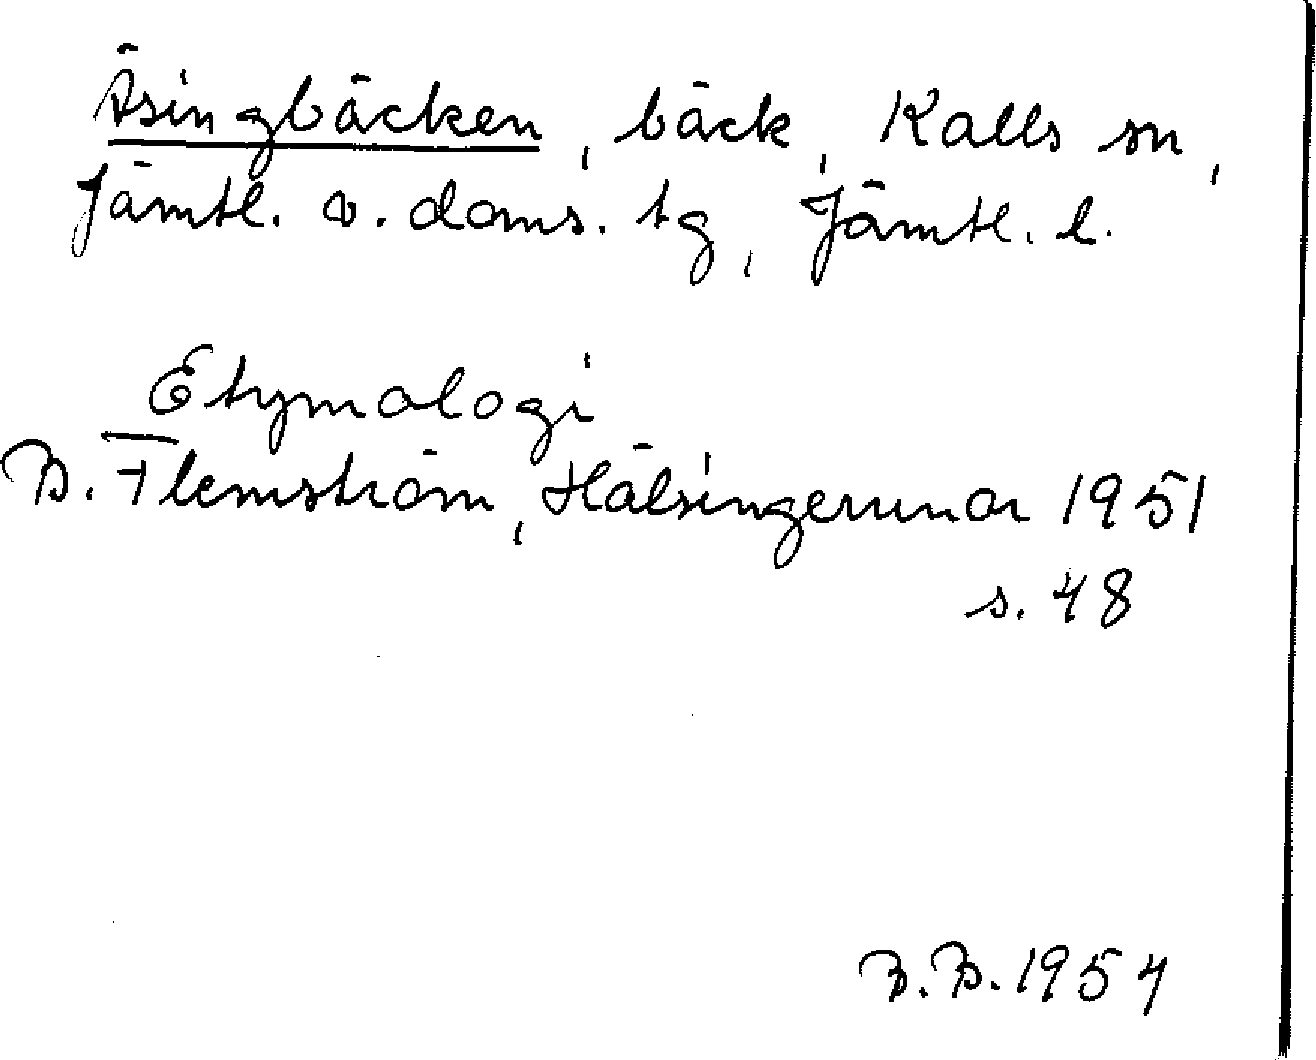 Åsingbäcken, bäck, Kalls sn,
Jämtl. v. doms. tg, Jämtl. l.
Etymologi
B. Flemström, Hälsingerunor 1951
s. 48
B.B. 1954